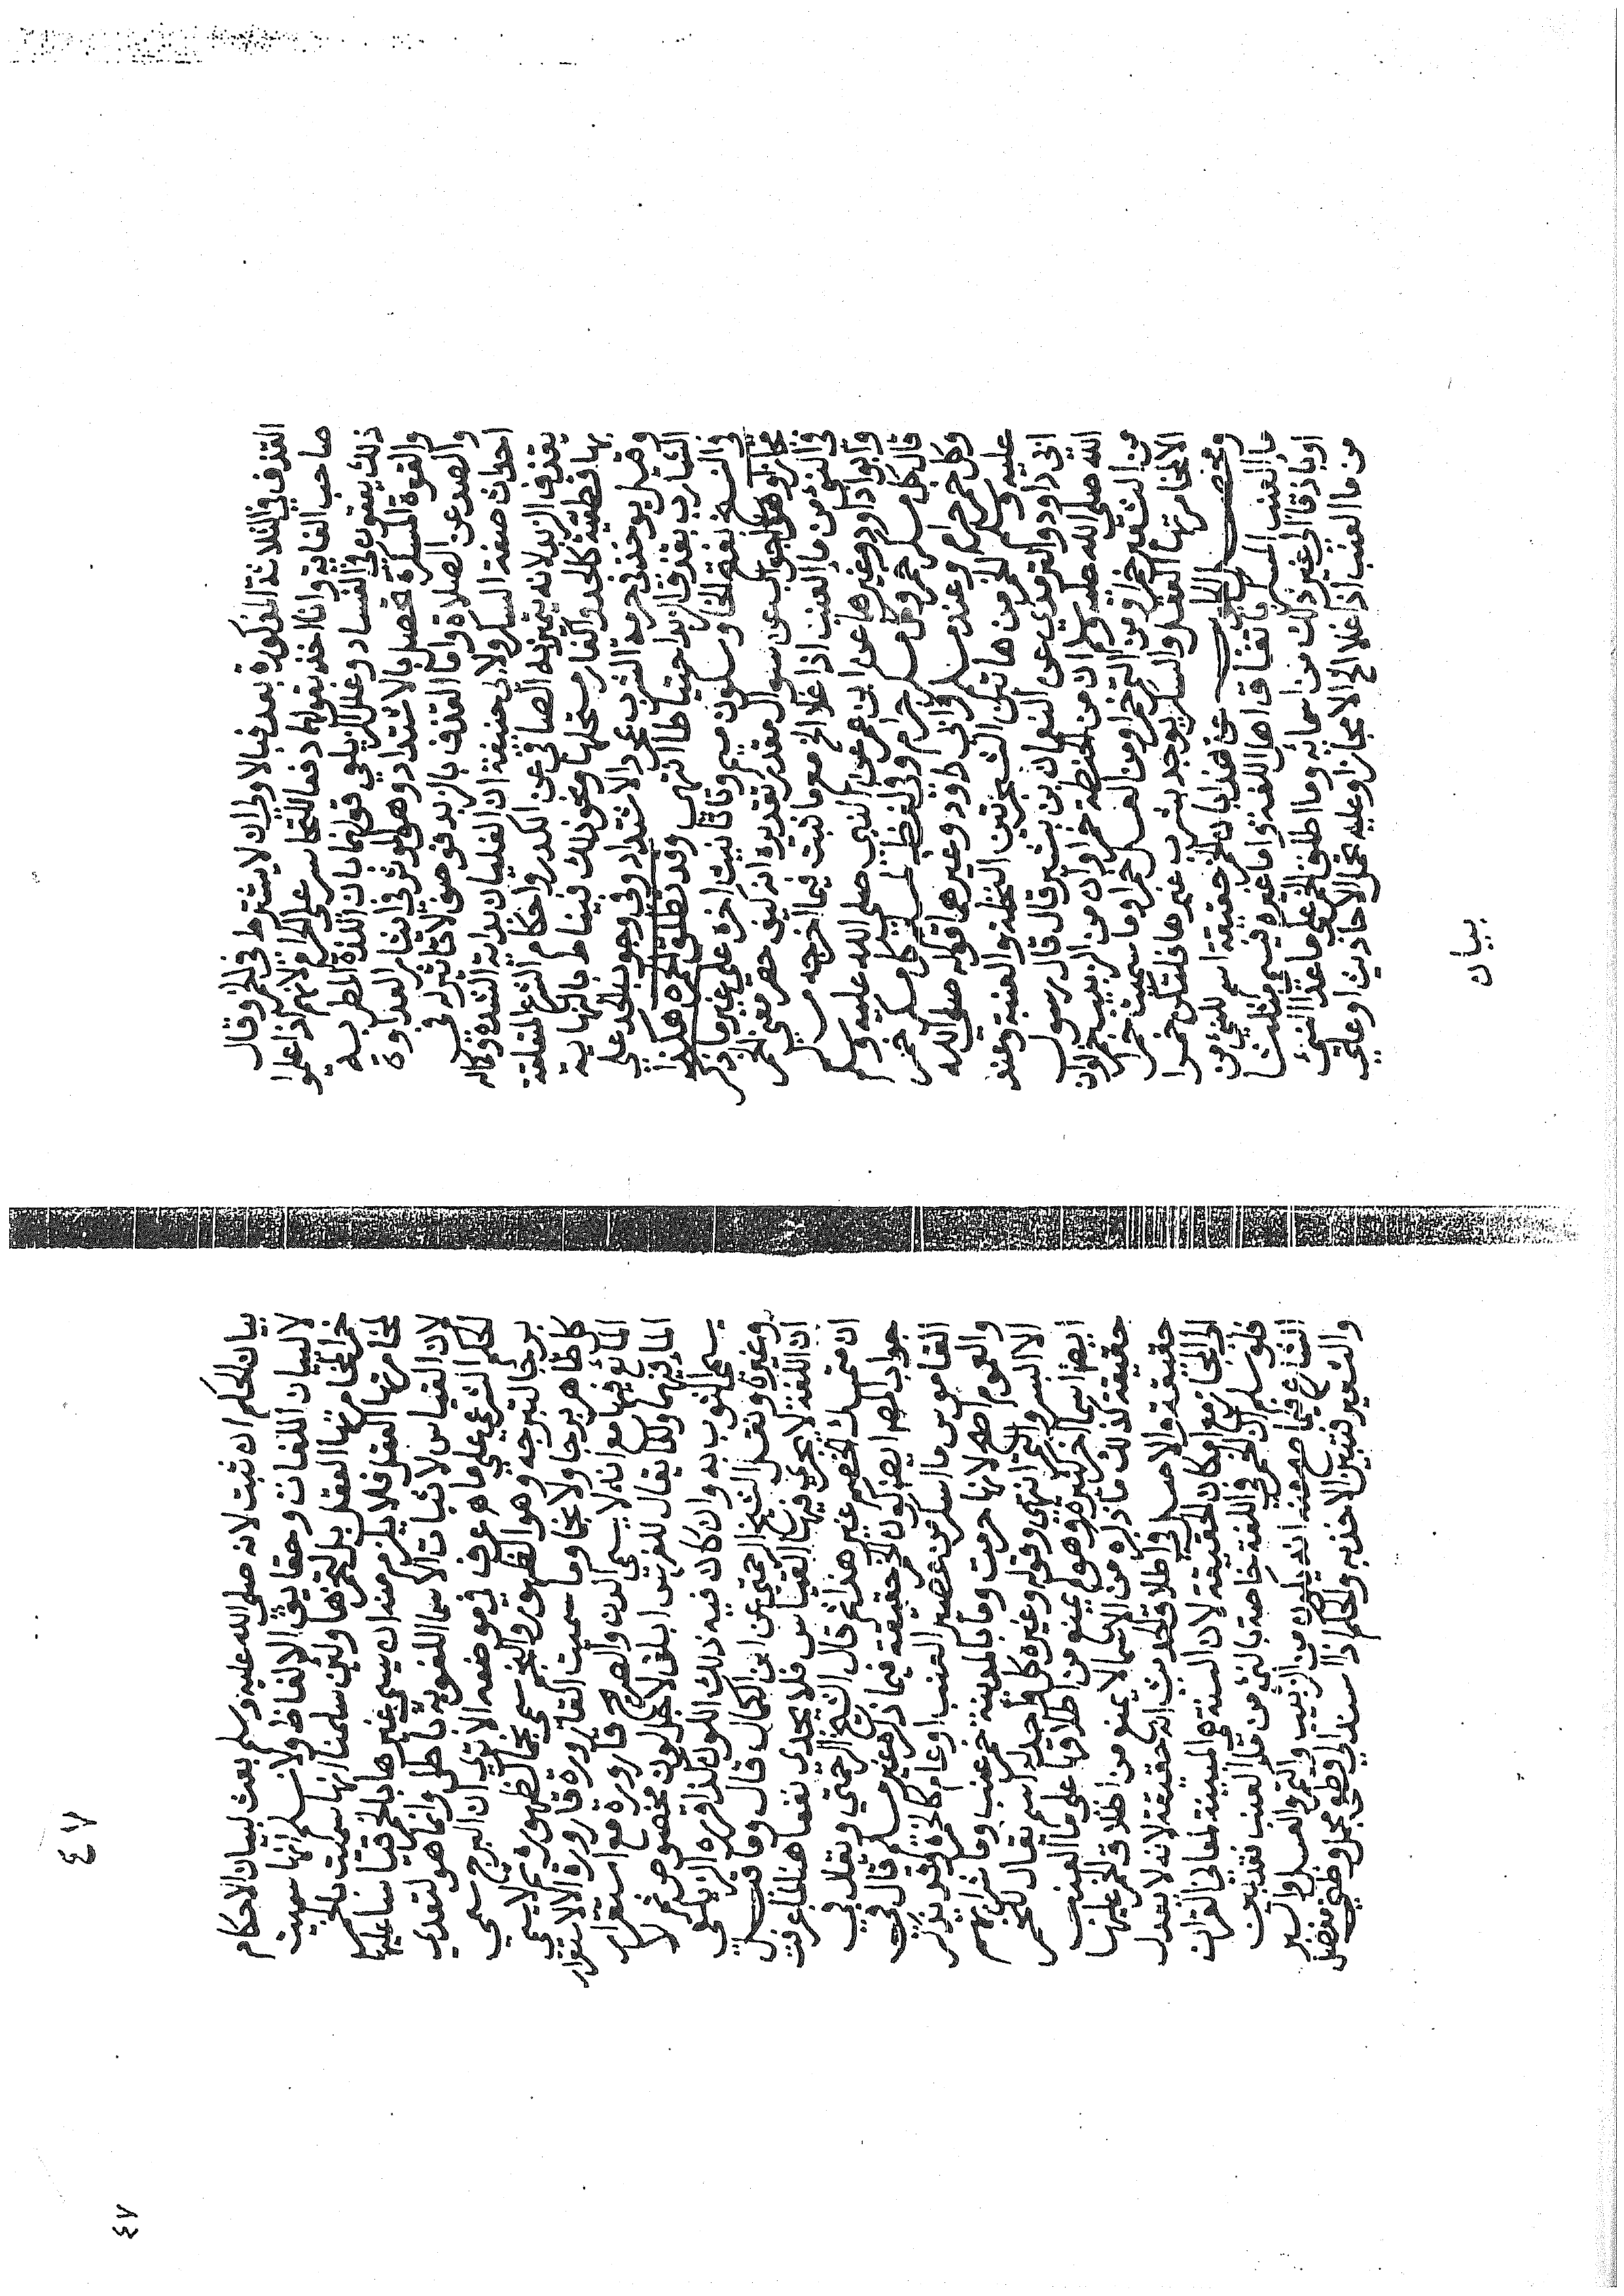 القذف في الثلاثة المذكورة بعد فبالاولى ان لا يشترط في الخمر وقال
صاحب الغاية وانا اخذ بقولهما دفعا للتجاسر على الحرام لانهم اذا علموا
ذلك يقعون في الفساد وعلل الزيلعي قولهما بان اللذة المطربة
والقوة المسكرة تحصل بالاشتداد وهو المؤثر في ايقاع العداوة
والصد عن الصلاة واما القذف بالزبد فوصف لا تاثير له في
احداث صفة السكر ولابي حنيفة ان الغليان بداية الشدة وكماله
بقذف الزبد لانه يتميز به الصافي عن الكدر واحكام الشرع المتعلقة
بها قطعية كالحد واكفار مستحلها ونحو ذلك فيناط بالنهاية
وقيل يوخذ في حرمة الشرب بمجرد الاشتداد وفي وجوب الحد على
الشارب بقذف الزبد احتياطا انتهى وقد تطلق الخمرة هكذا
في النسخ بفتح الخا وسكون ميم وتا تانيث اخره على غير ما ذكر
مجازا هو الجواب عن سوال مقدر تقديره انه كيف حصر معنى الخمر
في الني من ما العنب اذا غلا الخ مع ما ثبت فيما اخرجه مسلم
وابو داود وغيرهما عن ابن عمر عن النبي صلى الله عليه وسلم
قال كل مسكر خمر وكل مسكر حرام وفي لفظ لمسلم كل مسكر خمر
وكل خمر حرام وعند مسلم وابي داود وغيرهما قوله صلى الله
عليه وسلم الخمر من هاتين الشجرتين النخلة والعنبة وعند
ابي داود والترمذي عن النعمان بن بشير قال قال رسول
الله صلى الله عليه وسلم ان من الحنطة خمرا وان من الزبيب خمرا وان
من الشعير خمرا ومن التمر خمرا ومن العسل خمرا وما سميت خمرا
الا لمخامرتها العقل والسكر يوجد بشرب غيرها فلتكن خمرا
الجواب عن هذا بان الخمر حقيقة اسم للني من
ما العنب المسكر باتفاق اهل اللغة واما غيره فيسمى مثلثا
او باذقا الى غير ذلك من اسمائه وما اطلق الخمر على ما عدا الني
من ما العنب اذا غلا الخ الا مجازا وعليه تحمل الاحاديث او على
بيان
٤٧
بيان الحكم ان ثبت لانه صلى الله عليه وسلم بعث لبيان الاحكام
لا لبيان اللغات وحقايق الالفاظ ولا نسلم انها سميت
خمرا لمخامرتها العقل بل لتخمرها ولئن سلمنا انها سميت بالخمر
لمخامرتها العقل فلا يلزم منه ان يسمى غيرها بالخمر قياسا عليها
لان القياس لاثبات الاسما اللغوية باطل وانما هو لتعدي
الحكم الشرعي على ما عرف في موضعه الا ترى ان البرج سمي
برجا لتبرجه وهو الظهور والنجم سمي نجما لظهوره ثم لا يسمى
كل ظاهر برجا ولا نجما وما سميت القارورة قارورة الا لاستقرار
المائع فيها مع انه لا يسمى الدن والصرح قارورة مع استقرار
الما فيهما وكما يقال للفرس ابلق لاجل لون مخصوص ثم لا
يسمى الثوب به وان كان فيه ذلك اللون كذا قرره الزيلعي
وغيره ونقل الشيخ الرحمتي عن ابن الكمال قال وما قيل
ان اللغة لا يجري فيها القياس فلا يجدي نفعا هنا لما عرفت
ان متمسك الخصم غير هذا ثم قال الشيخ الرحمتي ونقل في
جواب المص ايضا كون الخمر حقيقة فيما ذكره غير مسلم قال في
القاموس ما اسكر من عصير العنب او عام كالخمرة وقد يذكر
والعموم اصح لانها حرمت وما بالمدينة خمر عنب وما شرابهم
الا البسر والتمر انتهى وقوله وغيره كل واحد له اسم يقال للخمر
ايضا اسما اخر كثيرة وهو لم يمنع من اطلاقها على ما العنب
حقيقة كذلك ما ذكره من الاسما لا يمنع من اطلاق الخمر عليها
حقيقة والاصل في اطلاق الحديث انه حقيقة لانه لا يعدل
الى المجاز مع امكان الحقيقة لان السنة هي المبينة لمعاني القران
فلو سلم ان الخمر في اللغة خاصة بالني من ما العنب فقد بين
الشارع فيما صح عنه انه يكون من الزبيب والتمر والعسل والبر
والشعير فتعين الاخذ به والحكم اذا استند الى قطعي مجمل وظني مفصل
٤٧